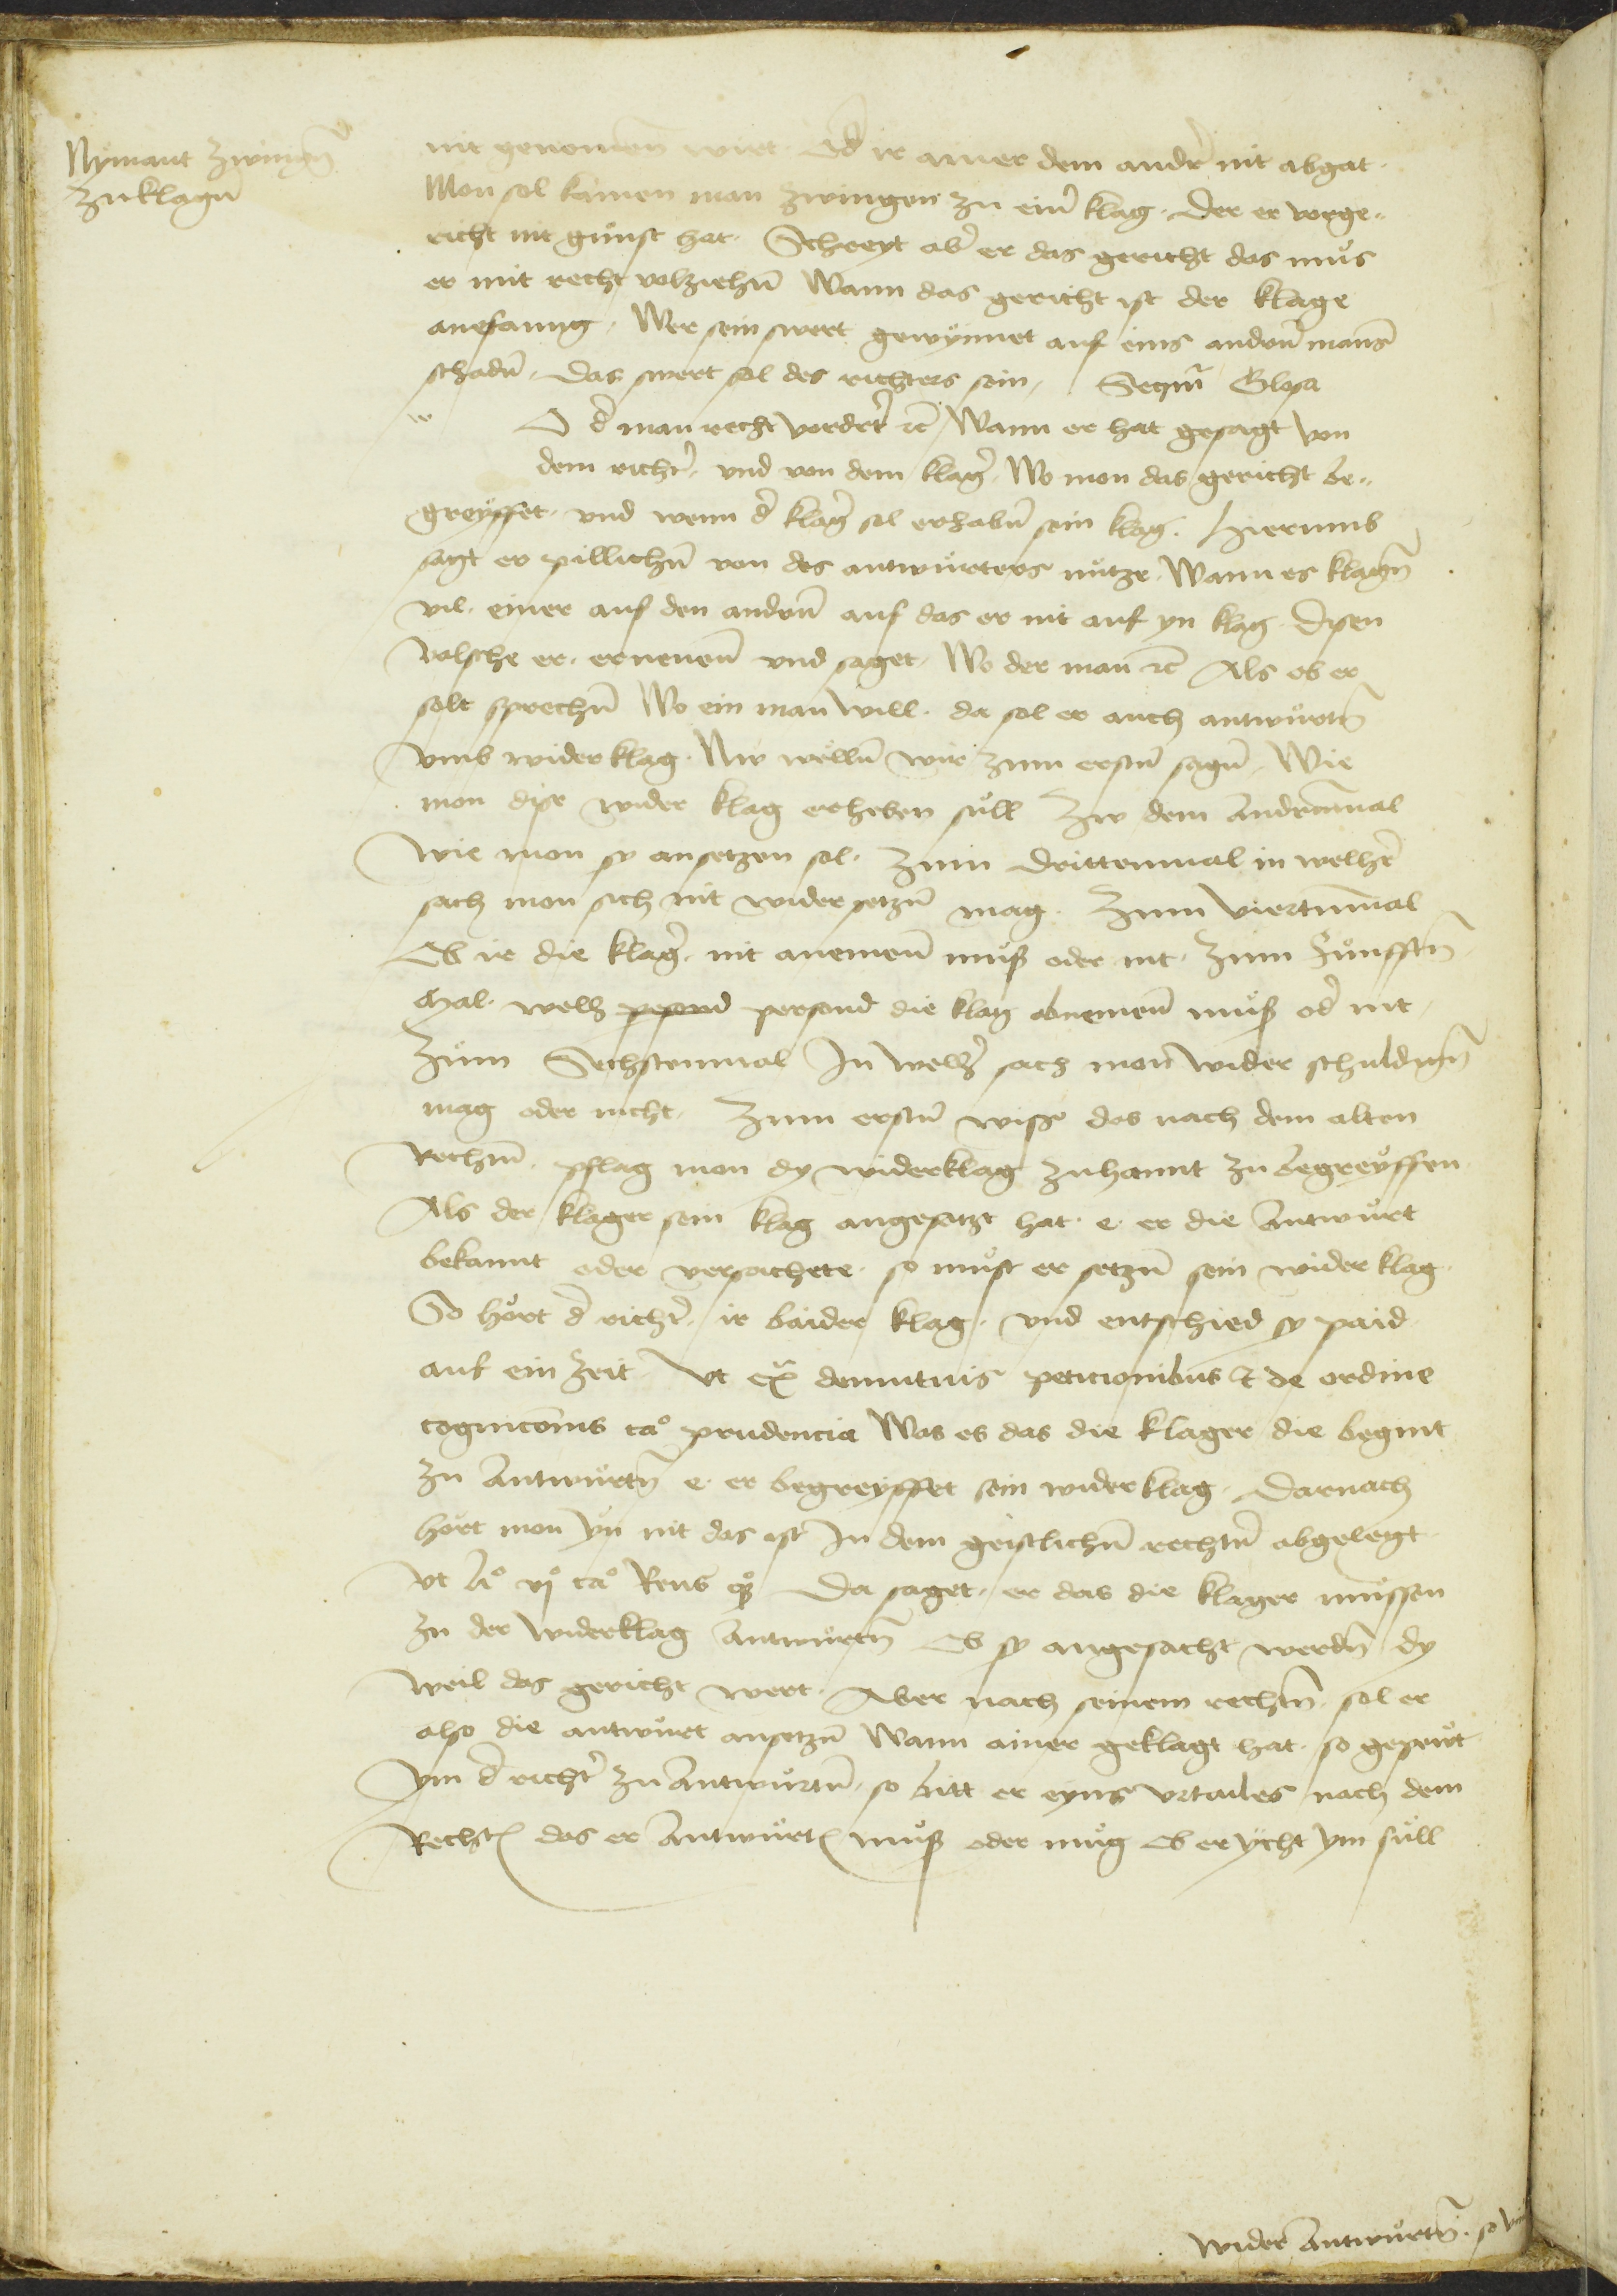 Nÿmant zwingn̄
zuklagn̄
nit genomen̄ wirt. Od̄ ir ainer dem andr̄ nit abgat.
Mon sol kainen man zwingen zu ein̄ klag. Der er vorge„
richt nit gůnst hat. Schreyt ab̄ er das gericht das můs
er mit recht volziehn̄ Wann das gericht ist der klage
anefanng. Wer sein swert gewÿnnet auf eins andrn̄ mans̄
schadn̄. Das swert sol des richters sein. Sequit̄ Glosa
w
O d̄ man recht vordrt̄ ꝛc̄ Wann er hat gesagt von
dem richt̄. vnd von dem klaḡ. Wo mon das gericht be„
greÿffet. vnd wenn d̄ klaḡ sol erhabn̄ sein klag. Hierumb
sagt er pillichn̄ von des antwůrters nůtze. Wann es klagn̄
vil. einer auf den andrn̄ auf das er nit auf yn klag. Disen
valsche er. ernenen̄ vnd saget. Wo der man̄ ꝛc̄ Als ob er
solt sprechn̄ Wo ein man will. da sol er auch antwůrtn̄
vmb wider klag. Nw wellen̄ wir zum erstn̄ sagn̄. Wie
mon dise wider klag erheben sůll Zw dem Andrn̄mal
wie mon sy ansetzen sol. Zum drittenmal in welhr̄
sach mon sich nit wider setzn̄ mag. Zum viertn̄mal
Ob ir die klaḡ. nit anemen̄ můß oder nit. Zum Fůnfftn̄
Mal. welh person̄d persond die klag abnemen̄ můß od̄ nit.
Zům Sechstenmal In welh̄ sach mon wider schuldign̄
mag oder nicht. Zum erstn̄ wiss das nach dem alten
Rechtn̄. pflag mon dy widerklag zuhannt zu begreÿffen
Als der klager sein klag angesatzt hat. e. er die Antwůrt
bekannt oder versachete. so můst er setzn̄ sein wider klag.
So hört d̄ richt̄. ir baider klag. vnd entschied sy paid
auf ein zeit. Vt ex̄ demutuis peticionibus et de ordine
cognicōnis cao prudencia Was es das die klager die begint
zu Antwůrtn̄ e. er begreÿffet sein wider klag. Darnach
hört mon yn̄ nit das ist In dem geistlichn̄ rechtn̄ abgelegt
Vt lio vjo cao Reus qo Da saget. er das die klager mussen
zu der widerklag Antwůrtn̄ Ob sy angesacht werdn̄ dy
weil das gericht wert. Aber nach seinem rechtn̄. sol er
also die antwůrt ansetzn̄ Wann ainer geklagt hat. so gepeut
ym d̄ richt̄ zu Antwůrtn̄. so bitt er eyns vrtailes nach dem
Rechtn̄ das er Antwůrtn̄ můß oder můg Ob er ÿcht ym sůll
wider Antwůrtn̄. so